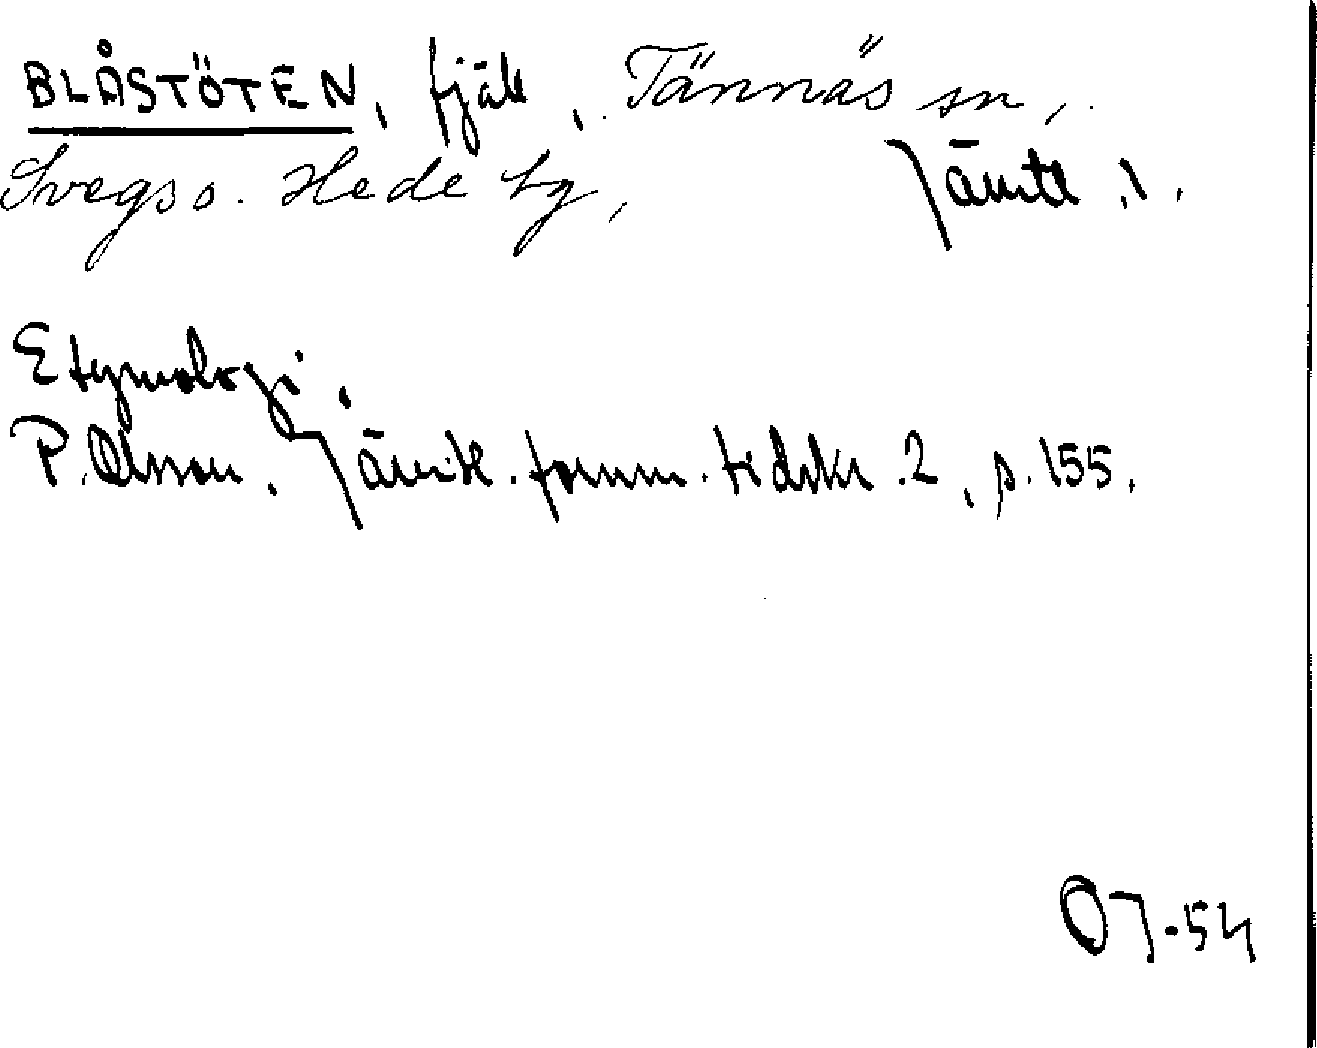 BLÅSTÖTEN, fjäll, Tännäs sn,
Svegs o. Hede tg, Jämtl. l.
Etymologi.
P. Olsson, Jämtl. fornm. tidskr. 2, s. 155.
OJ-54